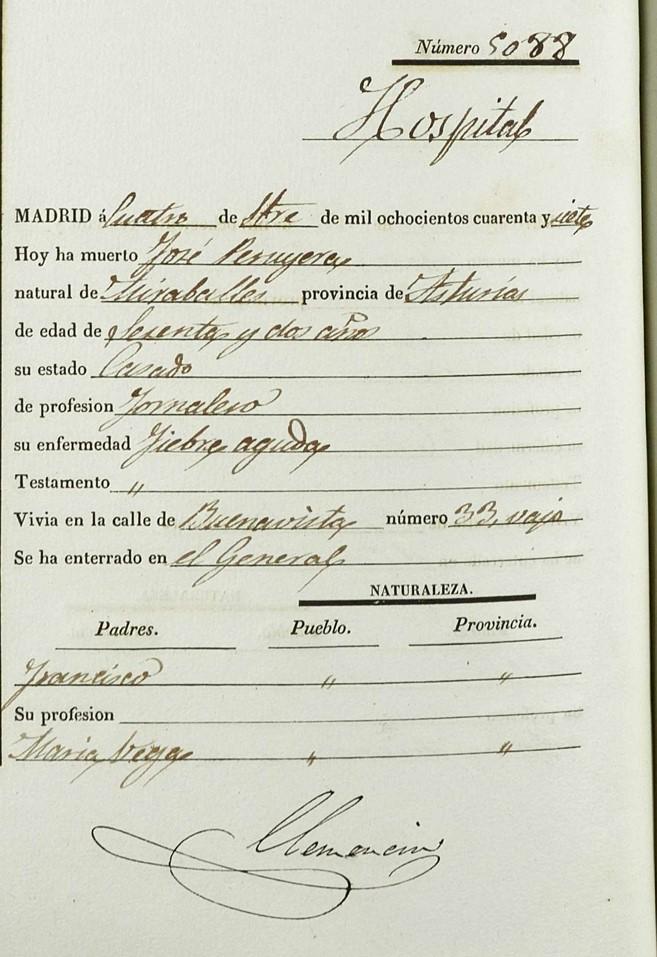 Número 5088
Hospital
MADRID á Cuatro de Stre de mil ochocientos cuarenta y siete
Hoy ha muerto José Peruyera
natural de Miraballes provincia de Asturias
de edad de Sesenta y dos años
su estado Casado
de profesion Jornalero
su enfermedad Fiebre aguda
Testamento "
Vivia en la calle de Buenavista número 33, vajo
Se ha enterrado en el General
NATURALEZA.
Padres. Pueblo. Provincia.
Francisco " "
Su profesion
Maria Vega " "
Clemencin